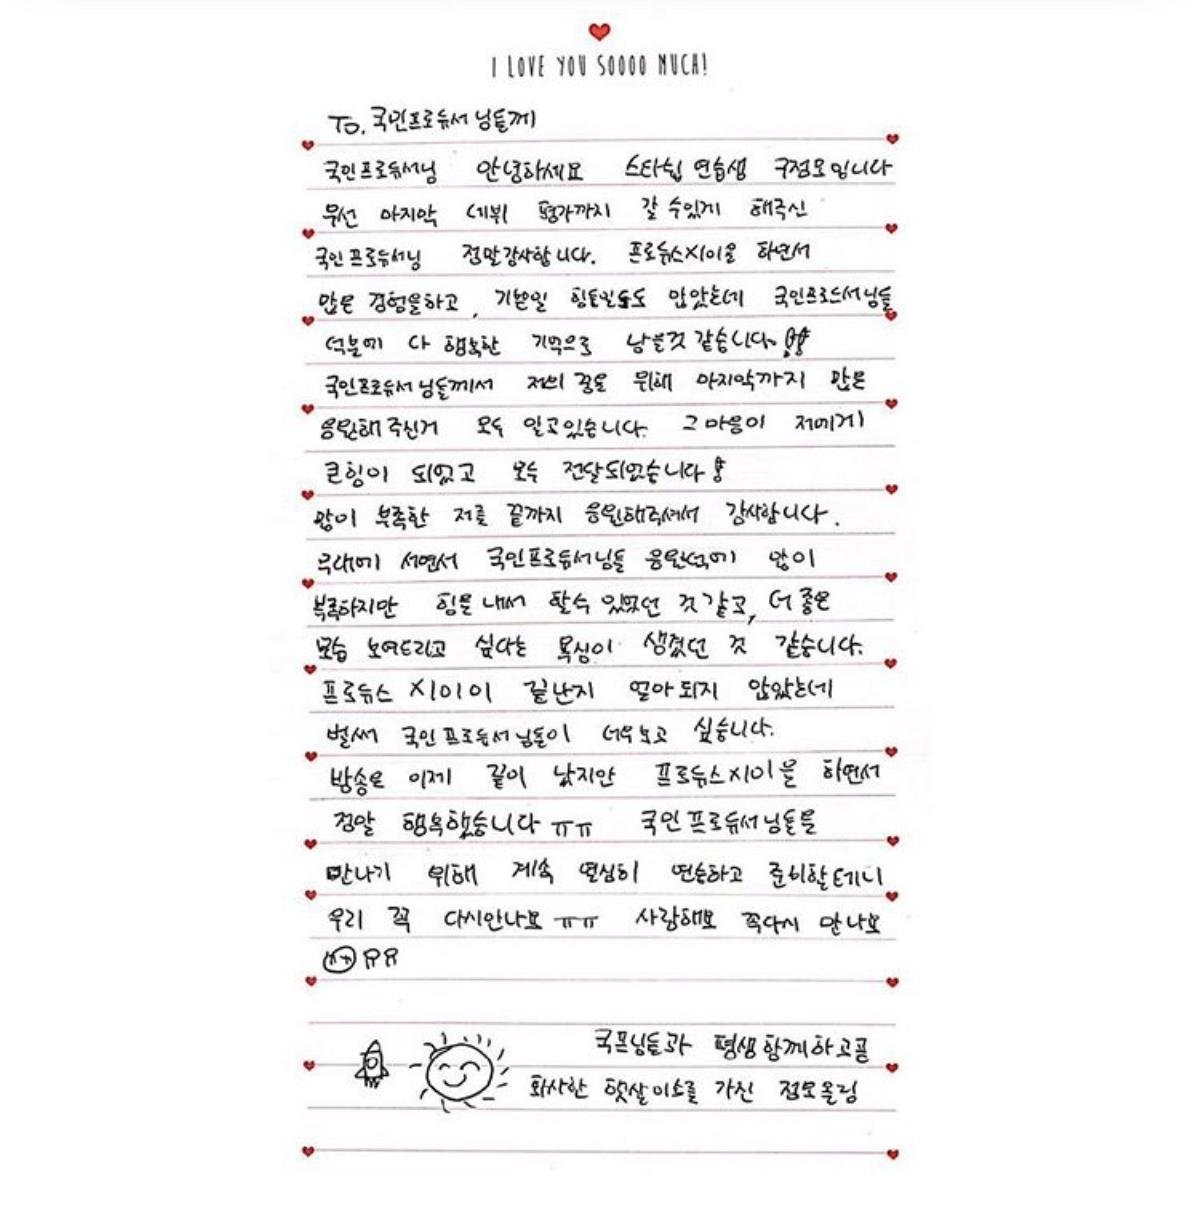 I LOVE YOU SOOOO MUCH!
To. 국민프로듀서 님들께
국민프로듀서님 안녕하세요 스타쉽 연습생 구정모입니다
우선 마지막 데뷔 평가까지 갈 수있게 해주신
국민프로듀서님 정말감사합니다. 프로듀스X101을 하면서
많은 경험을하고, 기쁜일 힘든일들도 많았는데 국민프로듀서님들
덕분에 다 행복한 기억으로 남을것 같습니다!!
국민프로듀서님들께서 저의 꿈을 위해 마지막까지 많은
응원해주신거 모두 알고있습니다. 그 마음이 저에게
큰힘이 되었고 모두 전달되었습니다!
많이 부족한 저를 끝까지 응원해주셔서 감사합니다.
무대에 서면서 국민프로듀서님들 응원덕에 많이
부족하지만 힘을 내서 할수 있었던 것 같고, 더 좋은
모습 보여드리고 싶다는 욕심이 생겼던 것 같습니다.
프로듀스 X101이 끝난지 얼마되지 않았는데
벌써 국민프로듀서님들이 너무보고 싶습니다.
방송은 이제 끝이 났지만 프로듀스X101을 하면서
정말 행복했습니다 ㅠㅠ 국민프로듀서님들을
만나기 위해 계속 열심히 연습하고 준비할테니
우리 꼭 다시만나요 ㅠㅠ 사랑해요 꼭다시 만나요
ㅠㅠ
국프님들과 평생함께하고픈
화사한 햇살미소를 가진 정모올림